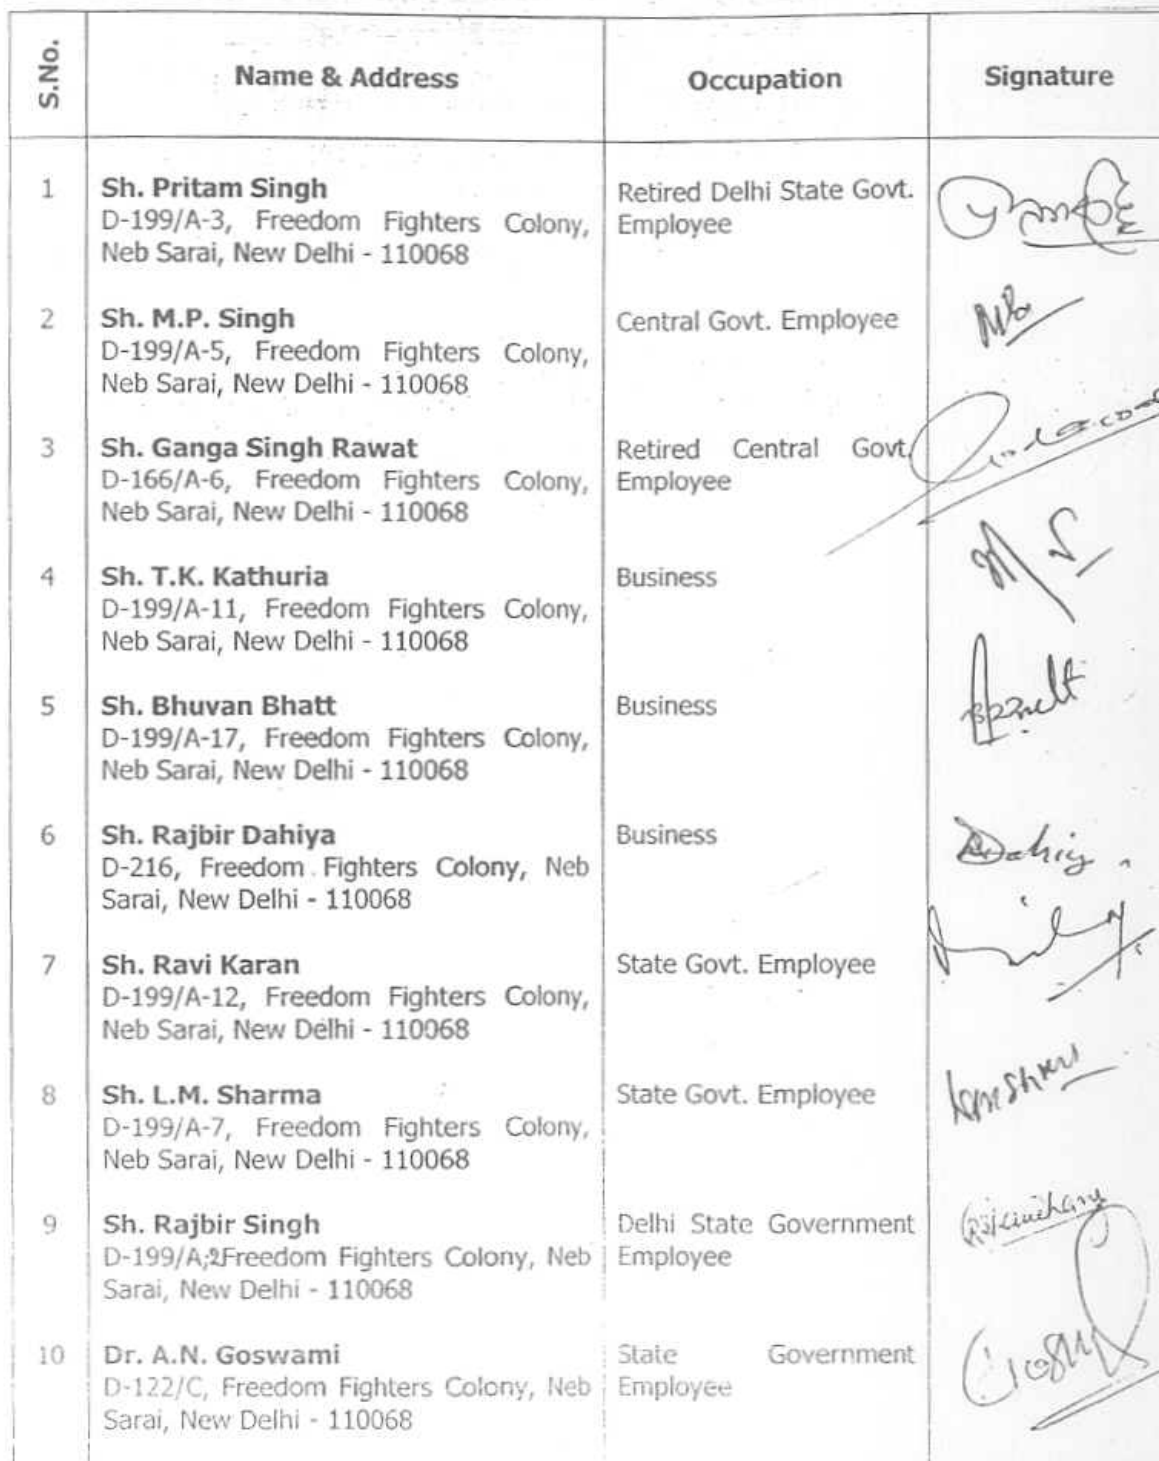 S.No.
Name & Address
Occupation
Signature
1
Sh. Pritam Singh
D-199/A-3, Freedom Fighters Colony,
Neb Sarai, New Delhi - 110068
Retired Delhi State Govt.
Employee
2
Sh. M.P. Singh
D-199/A-5, Freedom Fighters Colony,
Neb Sarai, New Delhi - 110068
Central Govt. Employee
3
Sh. Ganga Singh Rawat
D-166/A-6, Freedom Fighters Colony,
Neb Sarai, New Delhi - 110068
Retired Central Govt.
Employee
4
Sh. T.K. Kathuria
D-199/A-11, Freedom Fighters Colony,
Neb Sarai, New Delhi - 110068
Business
5
Sh. Bhuvan Bhatt
D-199/A-17, Freedom Fighters Colony,
Neb Sarai, New Delhi - 110068
Business
6
Sh. Rajbir Dahiya
D-216, Freedom Fighters Colony, Neb
Sarai, New Delhi - 110068
Business
7
Sh. Ravi Karan
D-199/A-12, Freedom Fighters Colony,
Neb Sarai, New Delhi - 110068
State Govt. Employee
8
Sh. L.M. Sharma
D-199/A-7, Freedom Fighters Colony,
Neb Sarai, New Delhi - 110068
State Govt. Employee
9
Sh. Rajbir Singh
Freedom Fighters Colony, Neb
Sarai, New Delhi - 110068
Delhi State Government
Employee
10
Dr. A.N. Goswami
D-122/C, Freedom Fighters Colony, Neb
Sarai, New Delhi - 110068
State Government
Employee